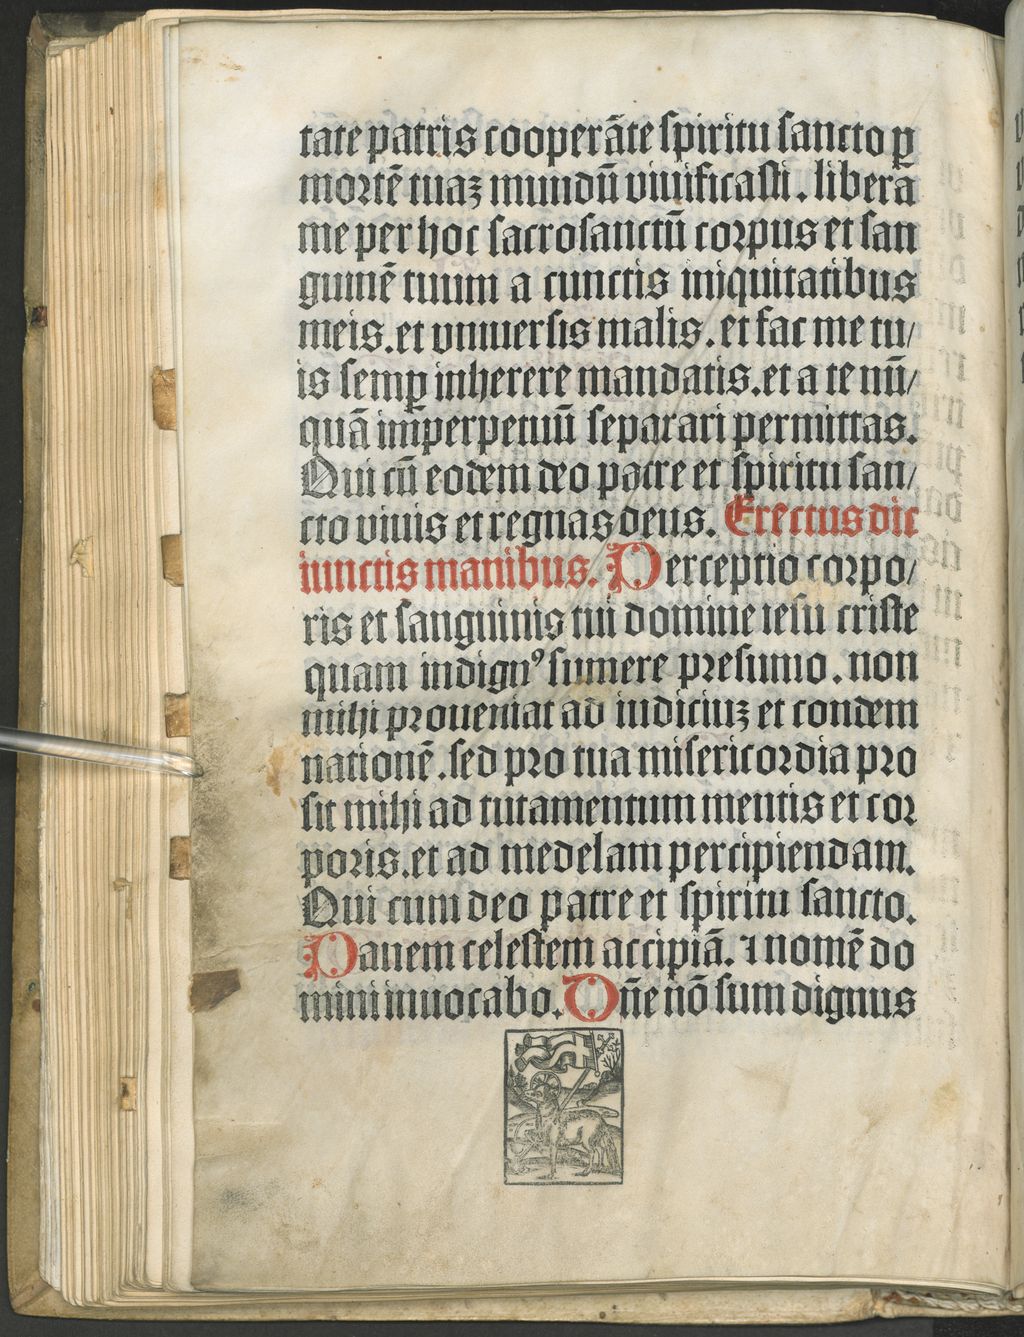 tate patris cooperãte spiritu sancto ꝑ
mortẽ tuaꝫ mundũ viuificasti. libera
me per hoc sacrosanctũ corpus et san
guinẽ tuum a cunctis iniquitatibus
meis. et vniuersis malis. et fac me tu/
is semꝑ inherere mandatis. et a te nũ/
quã imperpetuũ separari permittas.
Qui cũ eodem deo patre et spiritu san/
cto viuis et regnas deus. Erectus dic
iunctis manibus. Perceptio corpo/
ris et sanguinis tui domine iesu criste
quam indignꝰ sumere presumo. non
mihi proueniat ad iudiciuꝫ et condem
nationẽ. sed pro tua misericordia pro
sit mihi ad tutamentum mentis et cor
poris. et ad medelam percipiendam.
Qui cum deo patre et spiritu sancto.
Panem celestem accipiã. ⁊ nomẽ do
mini inuocabo. Dñe nõ sum dignus